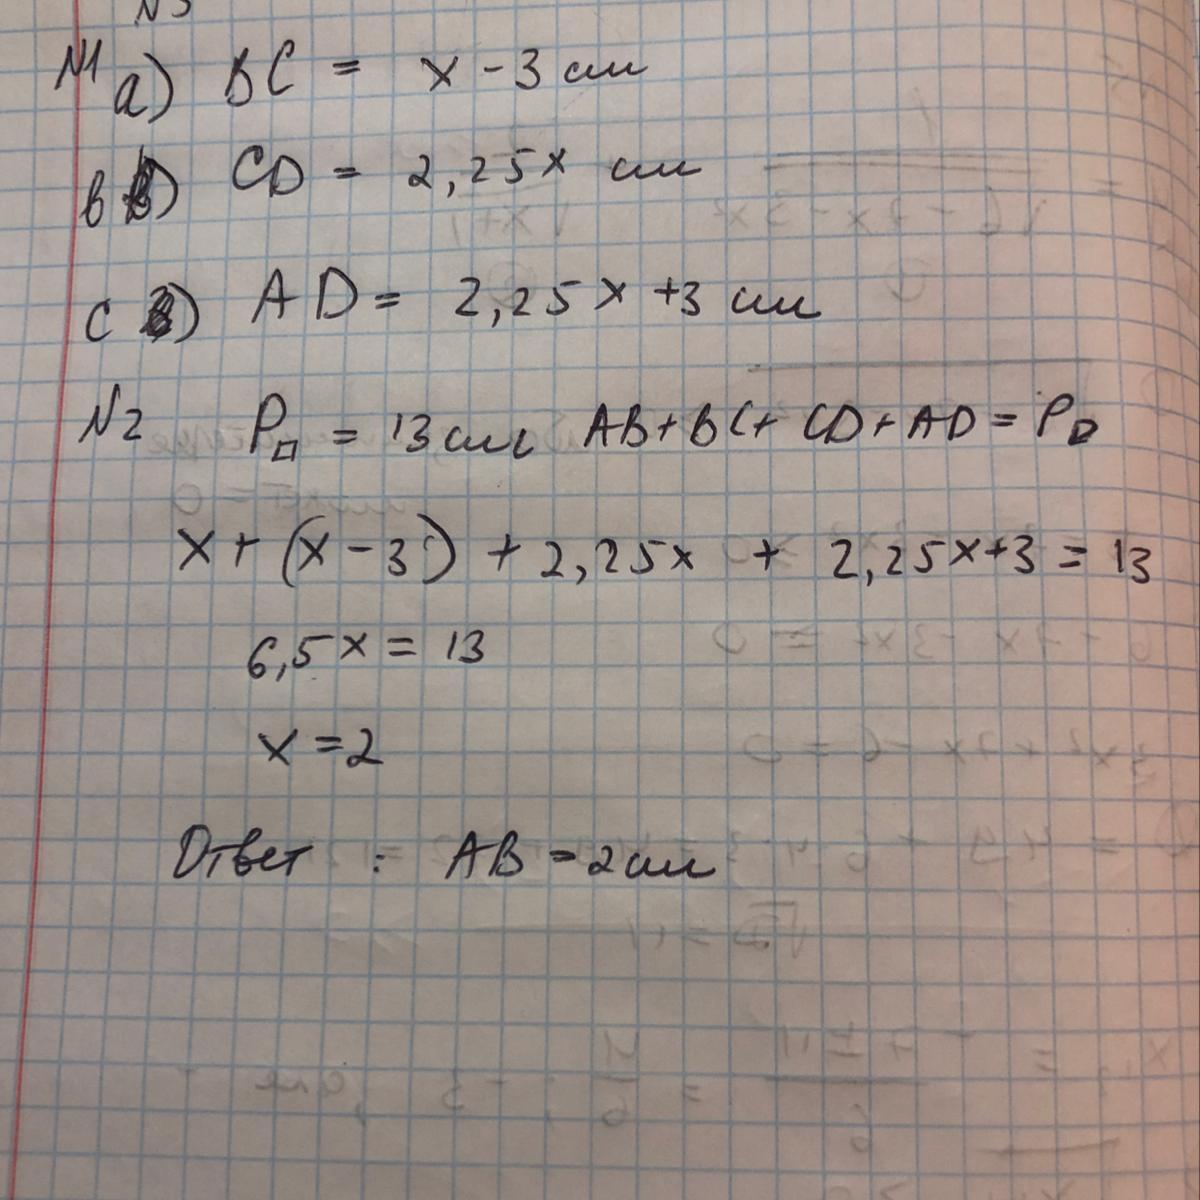 N3
N1 a) BC = x - 3 см
b) CD = 2,25x см
c) AD = 2,25x + 3 см
N2 P□ = 13 см AB + BC + CD + AD = P□
x + (x - 3) + 2,25x + 2,25x + 3 = 13
6,5x = 13
x = 2
Ответ : AB = 2 см